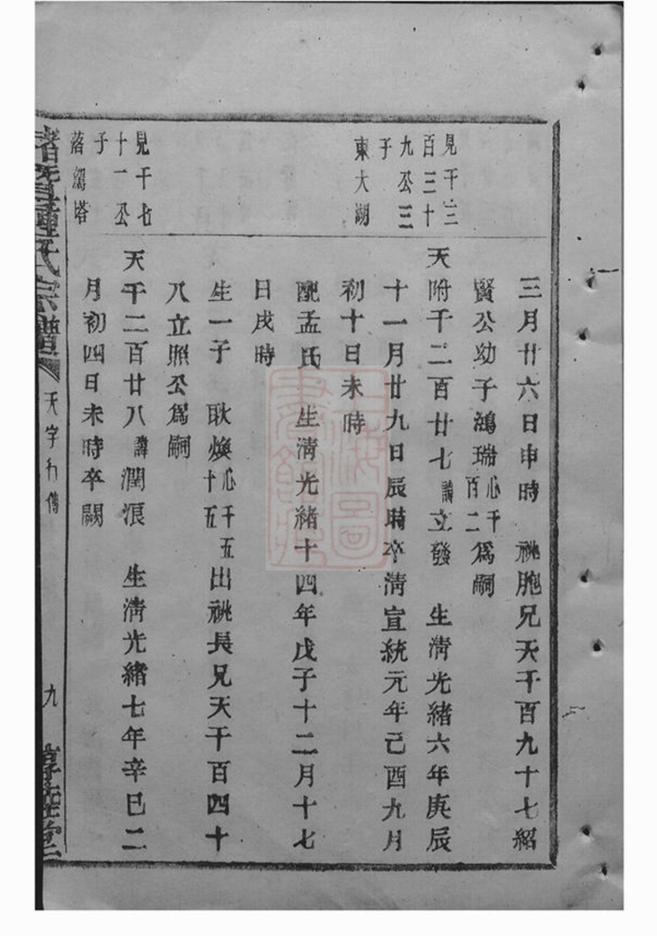 見千三
百三十
九公三
子
東大湖
三月廿六日申時　祧胞兄天千百九十七紹
賢公幼子鴻瑞心千百二為嗣
天附千二百廿七諱立發　生清光緒六年庚辰
十一月廿九日辰時卒清宣統元年己酉九月
初十日未時
配孟氏　生清光緒十四年戊子十二月十七
日戌時
生一子　耿煥心千五十五出祧長兄天千百四十
八立照公為嗣
見千七
十一公
子
落 塔
天千二百廿八諱潤浪　生清光緒七年辛巳二
月初四日未時卒闕
氏宗譜
天字行傳
九
堂